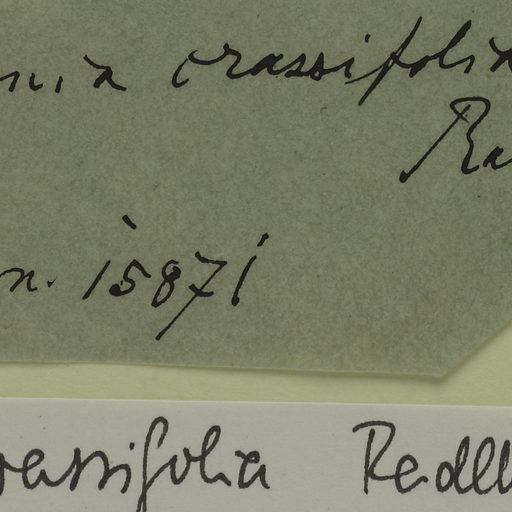 nia crassifolia
Ra
n. 15871
rassifolia Radlk